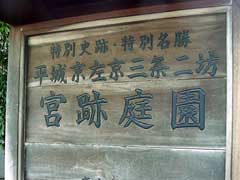 特別史跡・特別名勝
平城京左京三条二坊
宮跡庭園